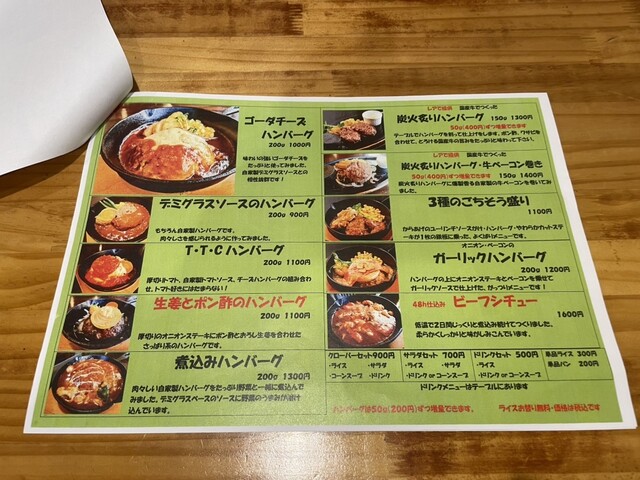 ゴーダチーズ
ハンバーグ
200g 1000円
味わいの強いゴーダチーズを
たっぷりと使ってみました。
自家製デミグラスソースとの
相性抜群です！
デミグラスソースのハンバーグ
200g 900円
もちろん自家製ハンバーグです。
肉々しさを感じられるように作ってみました。
T・T・Cハンバーグ
200g 1100円
厚切りトマト、自家製トマトソース、チーズハンバーグの組み合わ
せ。トマト好きにはたまらない！
生姜とポン酢のハンバーグ
200g 1100円
厚切りのオニオンステーキにポン酢とおろし生姜を合わせた
さっぱり系のハンバーグです。
煮込みハンバーグ
200g 1300円
肉々しい自家製ハンバーグをたっぷり野菜と一緒に煮込んで
みました。デミグラスベースのソースに野菜のうまみが溶け
込んでいます。
レアで提供 国産牛でつくった
炭火炙りハンバーグ 150g 1300円
50g(400円)ずつ増量できます
テーブルでハンバーグを割って仕上げをします。ポン酢、ワサビを
合わせて、とろける国産牛の旨みをたっぷりと味わって下さい。
レアで提供 国産牛でつくった
炭火炙りハンバーグ・牛ベーコン巻き
50g(400円)ずつ増量できます 150g 1400円
炭火炙りハンバーグに燻製香る自家製の牛ベーコンを巻いてみ
ました。
3種のごちそう盛り
1100円
からあげのユーリンチソースがけ・ハンバーグ・やわらかカットステー
キが1枚の鉄板に乗った、よくばりメニューです。
オニオン・ベーコンの
ガーリックハンバーグ
200g 1200円
ハンバーグの上にオニオンステーキとベーコンを乗せて
ガーリックソースで仕上げた、がっつりメニューです。
48h仕込み ビーフシチュー
1600円
低温で2日間じっくりと煮込み続けてつくりました。
柔らかくしっかりと味がしみこんでいます。
クローバーセット900円 サラダセット 700円 ドリンクセット 500円 単品ライス 300円
・ライス ・サラダ ・ライス ・サラダ ・ライス 単品パン 200円
・コーンスープ ・ドリンク ・ドリンク or コーンスープ ・ドリンク or コーンスープ
ドリンクメニューはテーブルにあります
ハンバーグは50g(200円)ずつ増量できます。 ライスお替り無料・価格は税込です